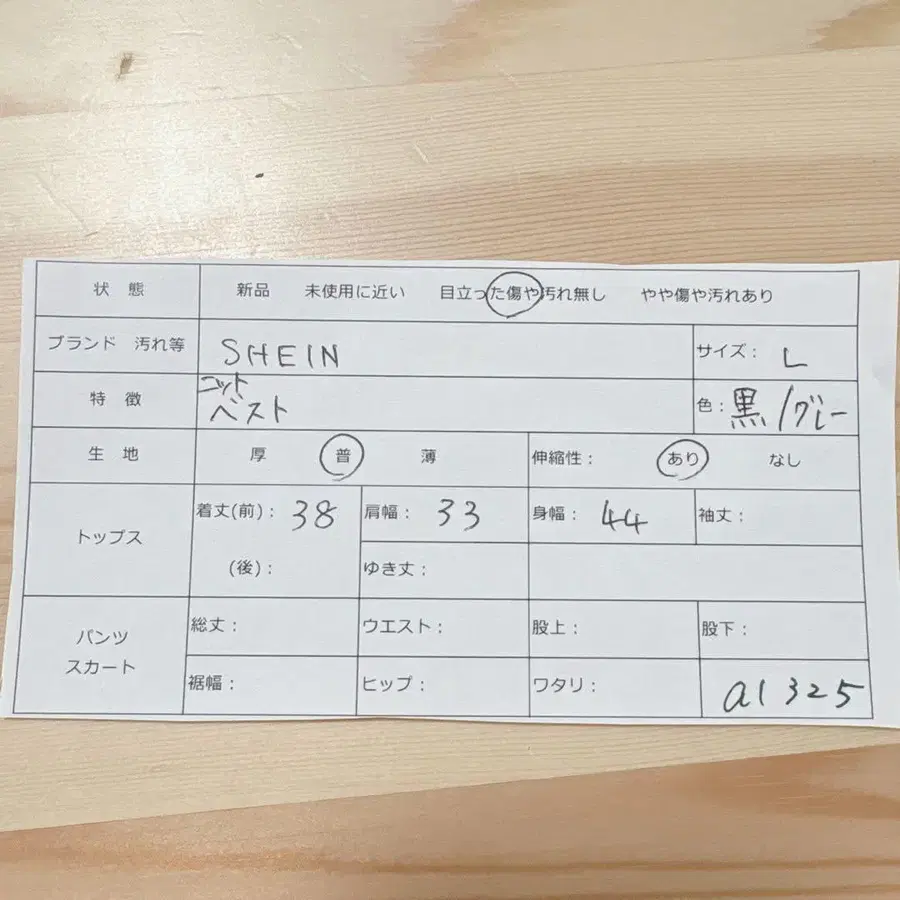 状態 新品 未使用に近い 目立った傷や汚れ無し やや傷や汚れあり
ブランド 汚れ等 SHEIN サイズ： L
特徴 ニット ベスト 色： 黒/グレー
生地 厚 普 薄 伸縮性： あり なし
トップス 着丈(前)： 38 肩幅： 33 身幅： 44 袖丈：
(後)： ゆき丈：
パンツ スカート 総丈： ウエスト： 股上： 股下：
裾幅： ヒップ： ワタリ： a1325